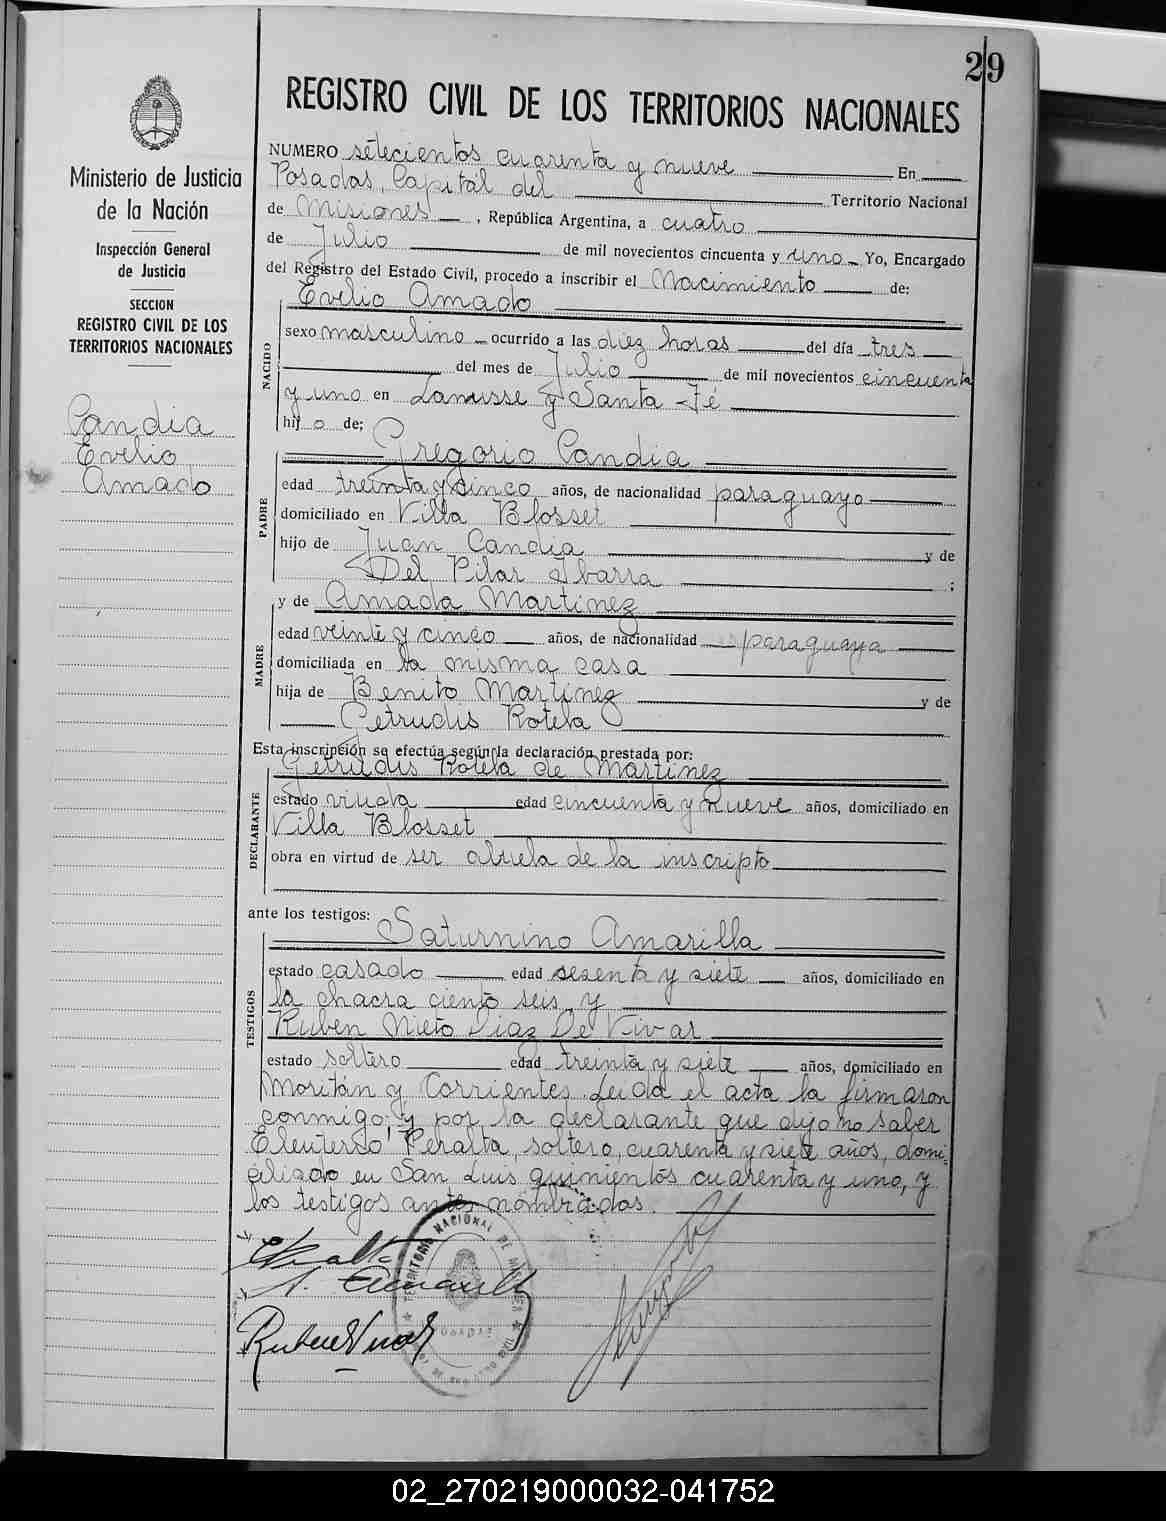 29
REGISTRO CIVIL DE LOS TERRITORIOS NACIONALES
Ministerio de Justicia
de la Nación
Inspección General
de Justicia
SECCION
REGISTRO CIVIL DE LOS
TERRITORIOS NACIONALES
Candia
Evelio
Amado
NUMERO setecientos cuarenta y nueve En
Posadas, Capital del Territorio Nacional
de Misiones, República Argentina, a cuatro
de Julio de mil novecientos cincuenta y uno Yo, Encargado
del Registro del Estado Civil, procedo a inscribir el Nacimiento de:
Evelio Amado
NACIDO
sexo masculino ocurrido a las diez horas del día tres
del mes de Julio de mil novecientos cincuenta
y uno en Lanusse y Santa Fé
hijo de:
Gregorio Candia
PADRE
edad treinta y cinco años, de nacionalidad paraguayo
domiciliado en Villa Blosset
hijo de Juan Candia y de
Del Pilar Ibarra ;
y de Amada Martinez
MADRE
edad veinte y cinco años, de nacionalidad paraguaya
domiciliada en la misma casa
hija de Benito Martinez y de
Getrudis Rotela
Esta inscripción se efectúa según la declaración prestada por:
Getrudis Rotela de Martinez
DECLARANTE
estado viuda edad cincuenta y nueve años, domiciliado en
Villa Blosset
obra en virtud de ser abuela de la inscripto
ante los testigos:
Saturnino Amarilla
TESTIGOS
estado casado edad sesenta y siete años, domiciliado en
la chacra ciento seis y
Ruben Nieto Diaz De Vivar
estado soltero edad treinta y siete años, domiciliado en
Moritán y Corrientes. Leida el acta la firmaron
conmigo y por la declarante que dijo no saber
Eleuterio Peralta, soltero, cuarenta y siete años, domi-
ciliado en San Luis quinientos cuarenta y uno, y
los testigos antes nombrados.
TERRITORIO NACIONAL DE MISIONES
POSADAS
02_270219000032-041752